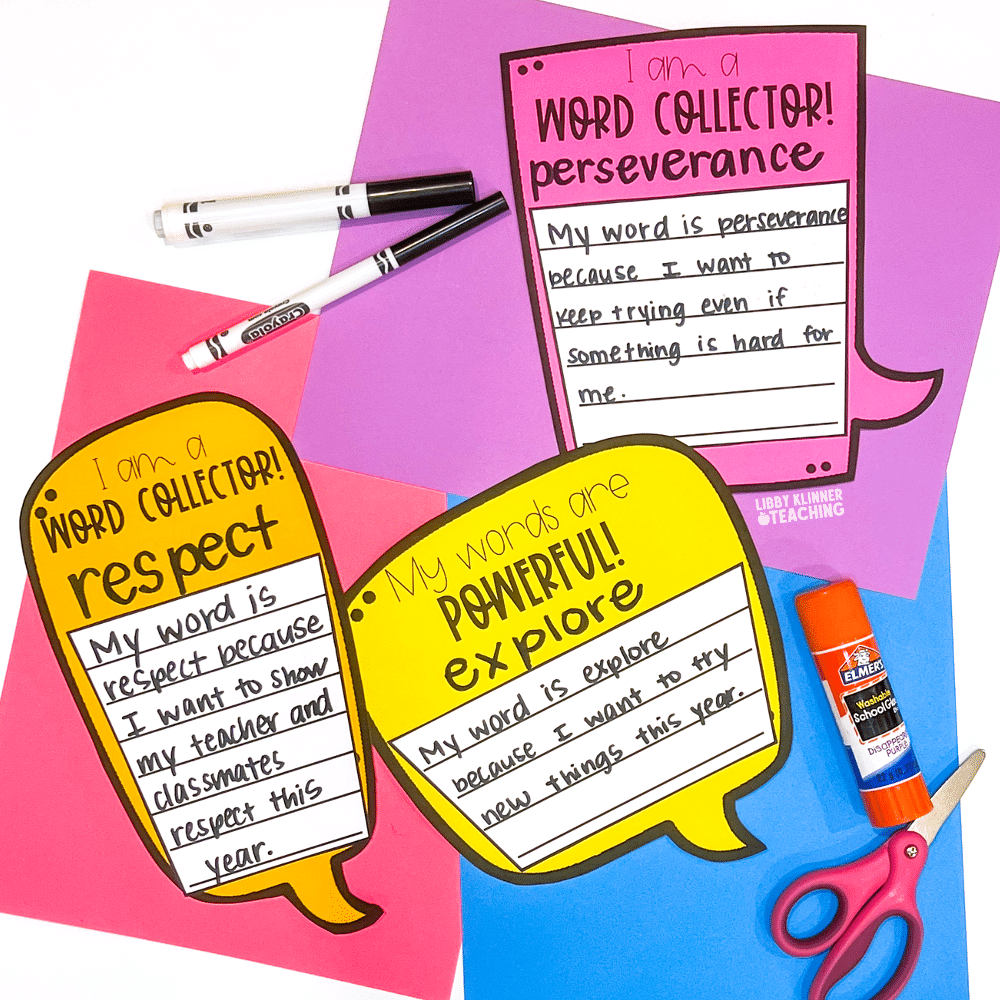 I am a
WORD COLLECTOR!
perseverance
My word is perseverance
because I want to
keep trying even if
something is hard for
me.
LIBBY KLINNER
TEACHING
Crayola
I am a
WORD COLLECTOR!
respect
My word is
respect because
I want to show
my teacher and
classmates
respect this
year.
My words are
POWERFUL!
explore
My word is explore
because I want to try
new things this year.
ELMER'S
Washable
School Glue
DISAPPEARS
PURPLE